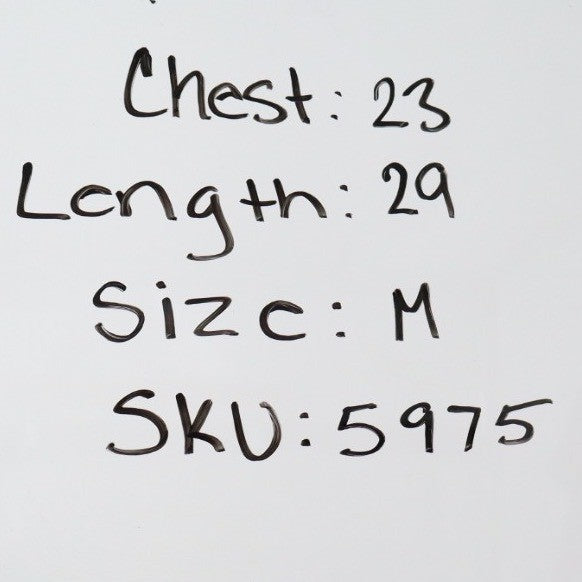 Chest: 23
Length: 29
Size: M
SKU: 5975